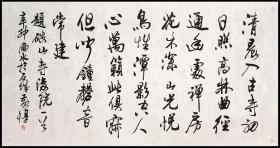 清晨入古寺初
日照高林曲徑
通幽處禅房
花木深山光悦
鳥性潭影空人
心萬籁此俱寂
但鐘磬音
常建
題破山寺後院一首
辛卯